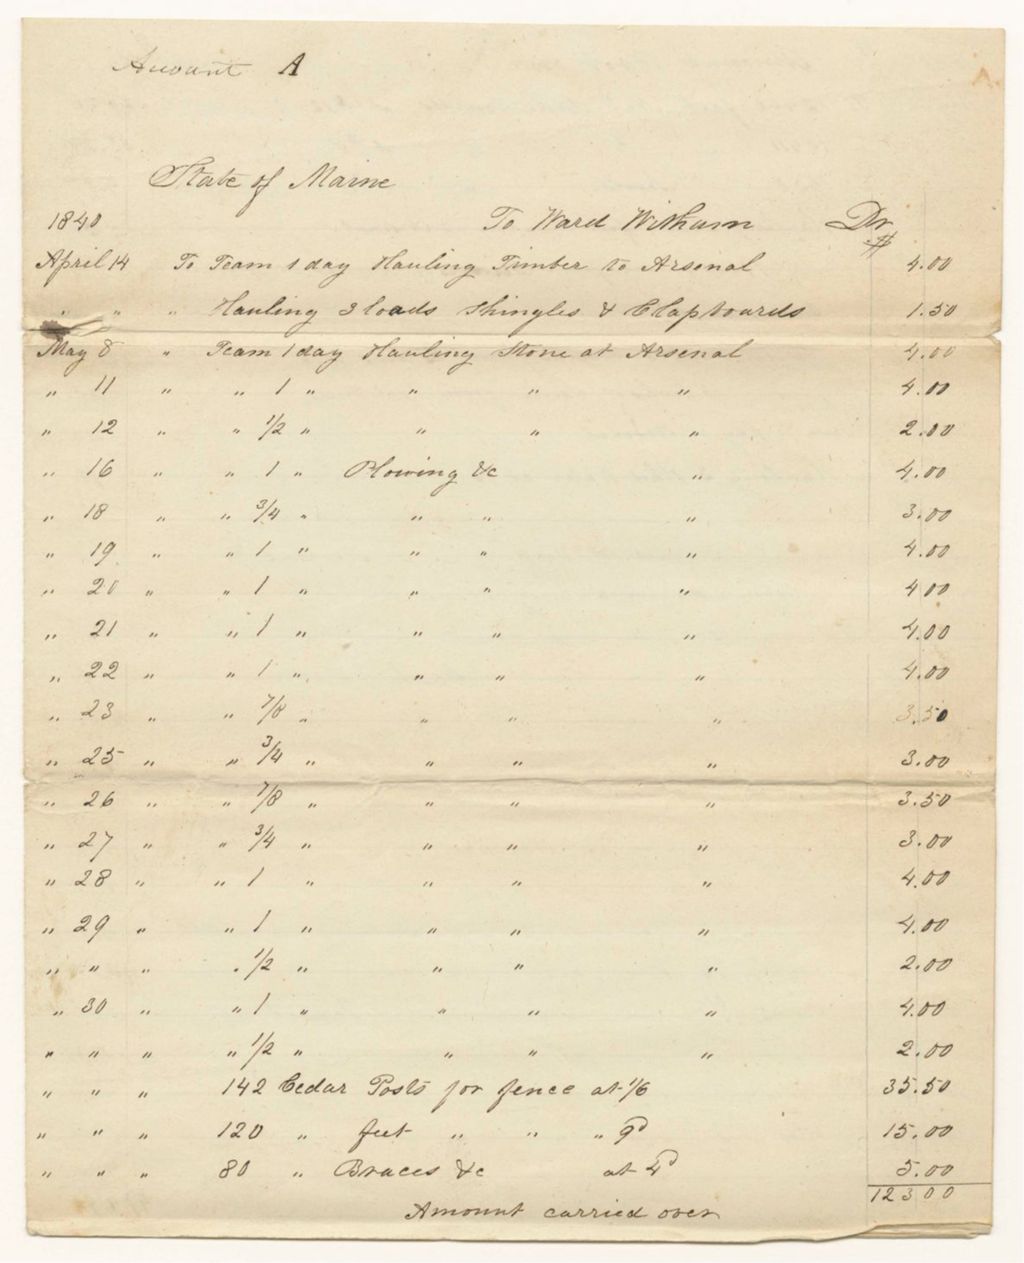 Account A
State of Maine
1840 To Ward Witham Dr
$
April 14 To Team 1 day Hauling Timber to Arsenal 4.00
" " " Hauling 3 loads Shingles & Clapboards 1.50
May 8 " Team 1 day Hauling Stone at Arsenal 4.00
" 11 " " 1 " " " " 4.00
" 12 " " 1/2 " " " " 2.00
" 16 " " 1 " Plowing &c " 4.00
" 18 " " 3/4 " " " " 3.00
" 19 " " 1 " " " " 4.00
" 20 " " 1 " " " " 4 00
" 21 " " 1 " " " " 4.00
" 22 " " 1 " " " " 4.00
" 23 " " 7/8 " " " " 3.50
" 25 " " 3/4 " " " " 3.00
" 26 " " 7/8 " " " " 3.50
" 27 " " 3/4 " " " " 3.00
" 28 " " 1 " " " " 4.00
" 29 " " 1 " " " " 4.00
" " " " 1/2 " " " " 2.00
" 30 " " 1 " " " " 4.00
" " " " 1/2 " " " " 2.00
" " " 142 Cedar Posts for fence at 1/6 35.50
" " " 120 " feet " " " 9d 15.00
" " " 80 " Braces &c at 4d 5.00
123 00
Amount carried over